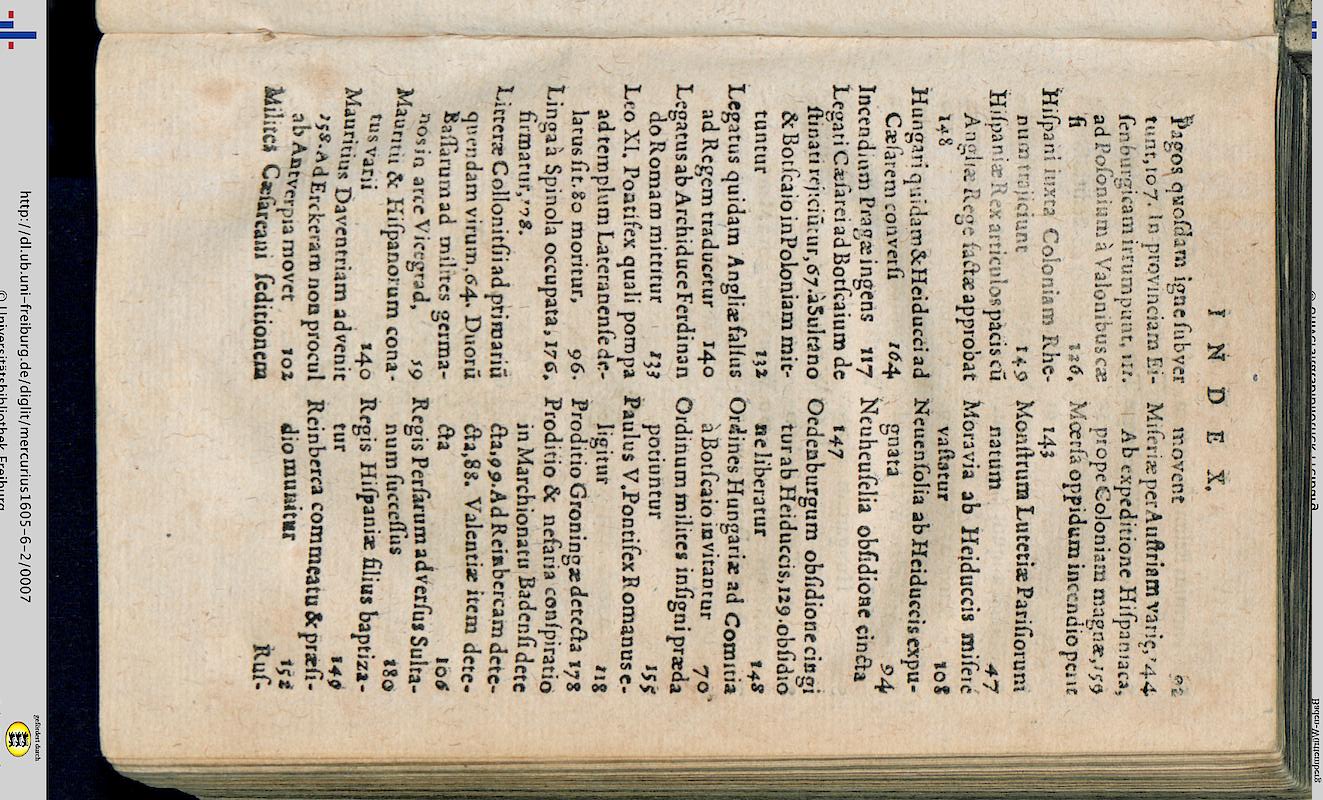 I N D E X.
Pagos quoſdam igne ſubver
tunt, 107. In provinciam Ei-
ſenburgicam irrumpunt, 111.
ad Poloniam à Valonibus cæ
ſi 126.
Hiſpani iuxta Coloniam Rhe-
num traiiciunt 149
Hiſpaniæ Rex articulos pacis cũ
Angliæ Rege factæ approbat
148
Hungari quidam & Heiducci ad
Cæſarem converſi 164
Incendium Pragæ ingens 117
Legati Cæſarei ad Botſcaium de
ſtinati rejiciũtur, 67. à Sultano
& Botſcaio in Poloniam mit-
tuntur 132
Legatus quidam Angliæ falſus
ad Regem traducitur 140
Legatus ab Archiduce Ferdinan
do Romam mittitur 133
Leo XI. Pontifex quali pompa
ad templum Lateranenſe de-
latus ſit. 80 moritur, 96.
Linga à Spinola occupata, 176.
firmatur, 178.
Litteræ Collonitſii ad primariũ
quendam virum. 64. Duorũ
Baſſarum ad milites germa-
nos in arce Vicegrad, 59
Mauritii & Hiſpanorum cona-
tus varii 140
Mauritius Daventriam advenit
158. Ad Erckeram non procul
ab Antverpia movet 102
Milites Cæſareani ſeditionem
movent 92
Miſeriæ per Auſtriam variç, 144
Ab expeditione Hiſpaniaca,
prope Coloniam magnæ, 159
Mœrſa oppidum incendio perit
143
Monſtrum Lutetiæ Pariſiorum
natum 47
Moravia ab Heiduccis miſerè
vaſtatur 108
Neuenſolia ab Heiduccis expu-
gnata 94
Neuheuſelia obſidione cincta
147
Oedenburgum obſidione cingi
tur ab Heiduccis, 129. obſidio
ne liberatur 148
Ordines Hungariæ ad Comitia
à Botſcaio invitantur 70
Ordinum milites inſigni præda
potiuntur 155
Paulus V. Pontifex Romanus e-
ligitur 118
Proditio Groningæ detecta 178
Proditio & nefaria conſpiratio
in Marchionatu Badenſi dete
cta, 99. Ad Reinbercam dete-
cta, 88. Valentiæ item dete-
cta 106
Regis Perſarum adverſus Sulta-
num ſucceſſus 180
Regis Hiſpaniæ filius baptiza-
tur 149
Reinberca commeatu & præſi-
dio munitur 152
Ruſ-
http://dl.ub.uni-freiburg.de/diglit/mercurius1605-6-2/0007
© Universitätsbibliothek Freiburg
gefördert durch